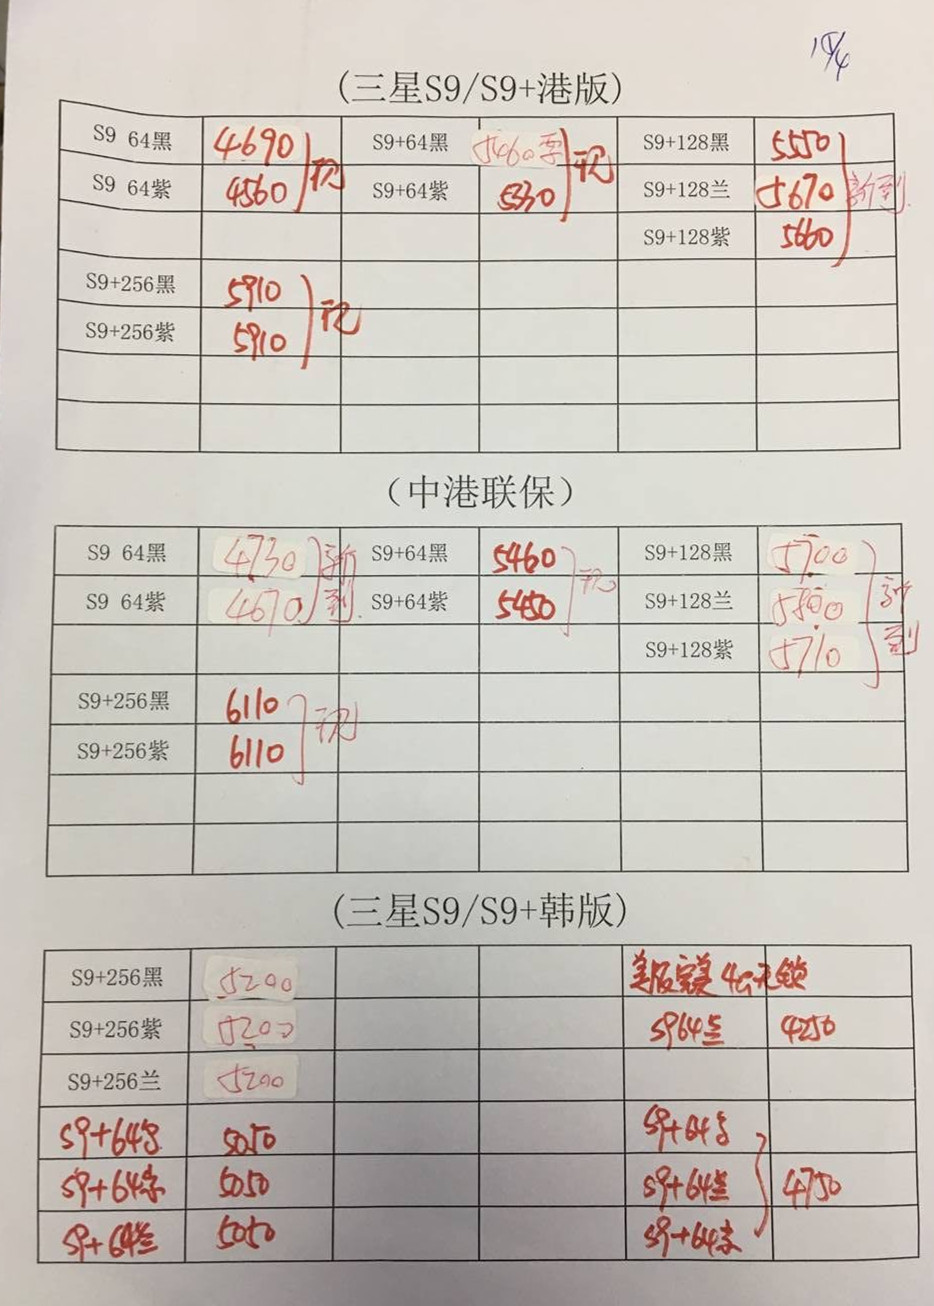 (三星S9/S9+港版)
S9 64黑 4690 S9+64黑 5460票 S9+128黑 5550
现 现
S9 64紫 4560 S9+64紫 5330 S9+128兰 5670 新到
S9+128紫 5660
S9+256黑 5910
现
S9+256紫 5910
(中港联保)
S9 64黑 4730 新 S9+64黑 5460 S9+128黑 5700
现
S9 64紫 4670 到 S9+64紫 5450 S9+128兰 5800 新
S9+128紫 5710 到
S9+256黑 6110
现
S9+256紫 6110
(三星S9/S9+韩版)
S9+256黑 5200 美版完美 无锁
S9+256紫 5200 S964兰 4250
S9+256兰 5200
S9+64 5050 S9+64
S9+64紫 5050 S9+64兰 4750
S9+64兰 5050 S9+64紫